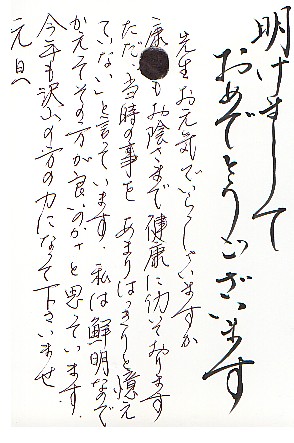 明けまして
おめでとうございます
先生お元気でいらっしゃいますか
康 もお陰さまで健康に働いております
ただ当時の事を あまりはっきりと憶え
ていない」と言っています。私は鮮明なので
かえってその方が良いのか、と思っています。
今年も沢山の方の力になって下さいませ
元旦